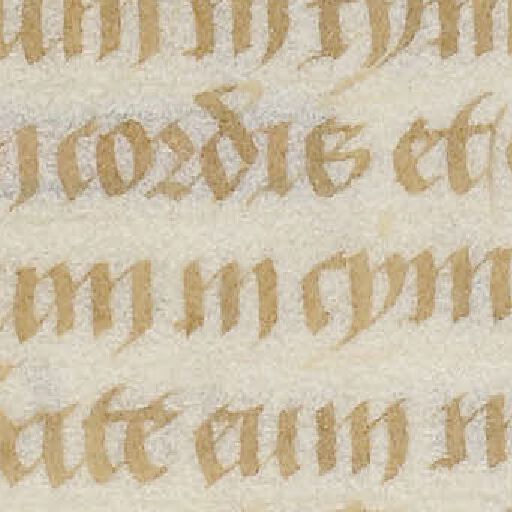 um in tym
cordis et
um in cym
ate eum